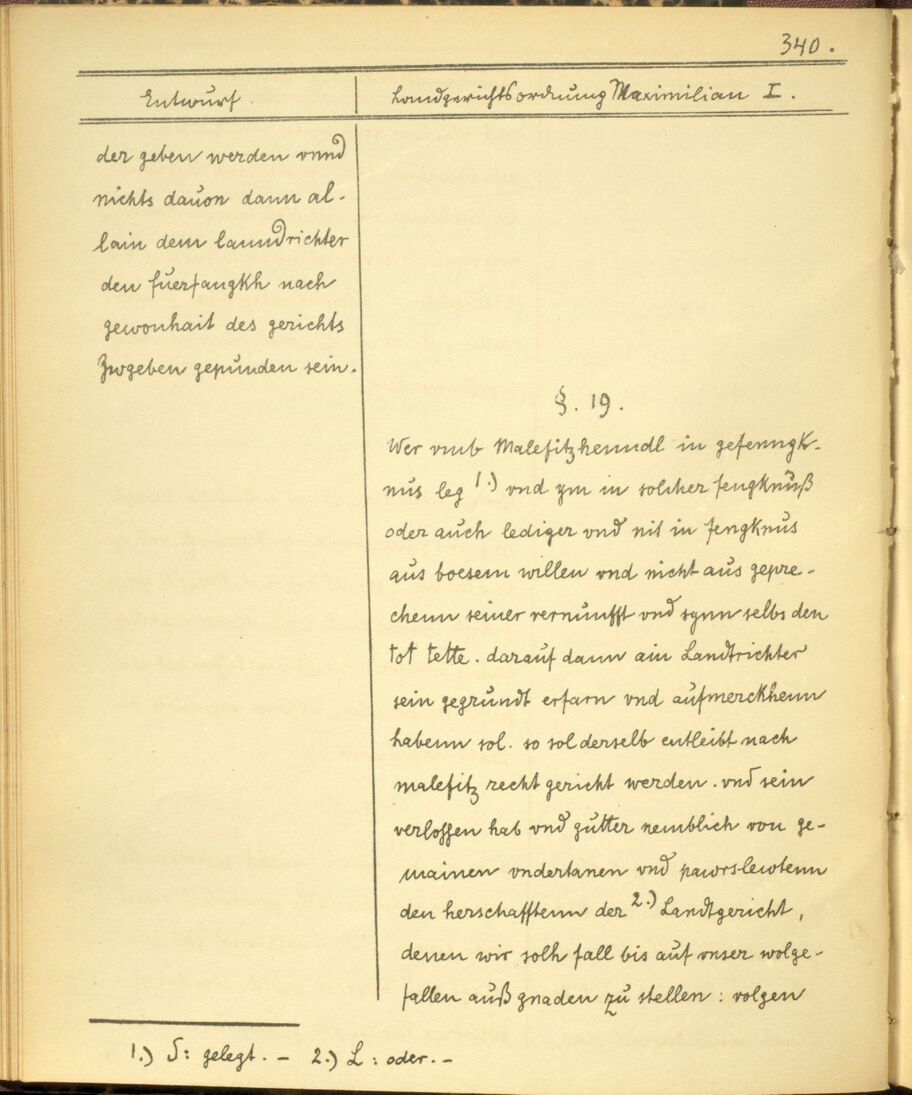 340.
Entwurf.
Landgerichtsordnung Maximilian I.
der geben werden vnnd
nichts dauon dann al-
lain dem lanndrichter
den fuerfangkh nach
gewonhait des gerichts
Zwgeben gepunden sein.
§. 19.
Wer vmb Malefitzhenndl in gefenngk-
nus leg 1.) vnd ym in solcher fengknuß
oder auch lediger vnd nit in fengknus
aus boesem willen vnd nicht aus gepre-
chenn seiner vernunfft vnd synn selbs den
tot tette. darauf dann ain Landtrichter
sein gegrundt erfarn vnd aufmerckhenn
habenn sol. so sol derselb entleibt nach
malefitz recht gericht werden. vnd sein
verlossen hab vnd gutter nemblich von ge-
mainen vndertanen vnd pawrslewtenn
den herschafftenn der 2.) Landtgericht,
denen wir solh fall bis auf vnser wolge-
fallen auß gnaden zu stellen: volgen
1.) S: gelegt. - 2.) L: oder. -